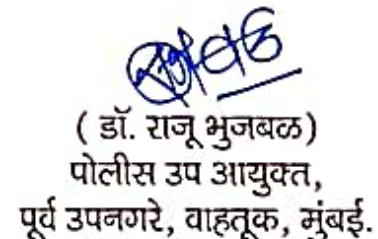 ( डॉ. राजू भुजबळ)
पोलीस उप आयुक्त,
पूर्व उपनगरे, वाहतूक, मुंबई.